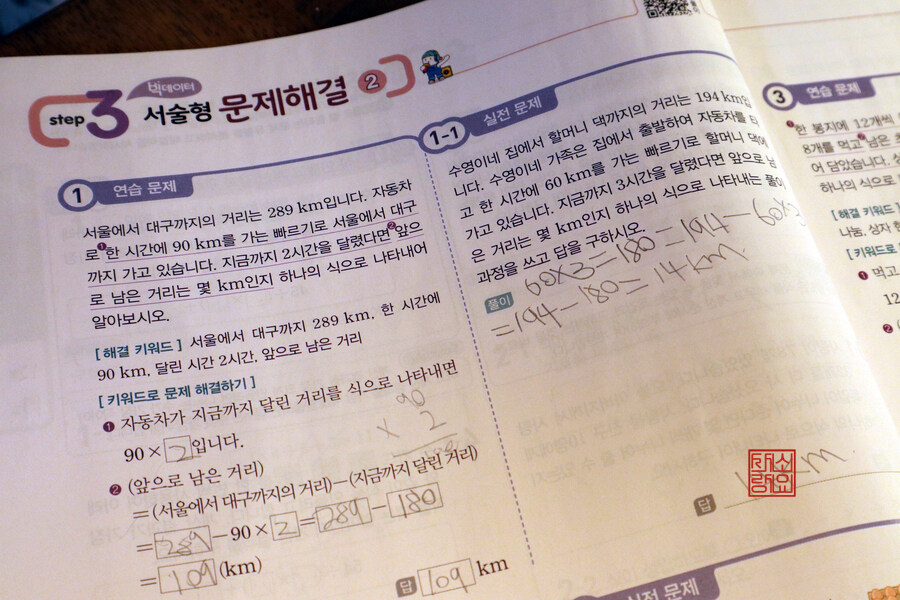 step 3
빅데이터
서술형 문제해결 2
1 연습 문제
서울에서 대구까지의 거리는 289 km입니다. 자동차
로 ❶한 시간에 90 km를 가는 빠르기로 서울에서 대구
까지 가고 있습니다. 지금까지 2시간을 달렸다면 ❷앞으
로 남은 거리는 몇 km인지 하나의 식으로 나타내어
알아보시오.
[해결 키워드] 서울에서 대구까지 289 km, 한 시간에
90 km, 달린 시간 2시간, 앞으로 남은 거리
[키워드로 문제 해결하기]
❶ 자동차가 지금까지 달린 거리를 식으로 나타내면
90 × 2 입니다.
90
× 2
❷ (앞으로 남은 거리)
=(서울에서 대구까지의 거리)−(지금까지 달린 거리)
= 289 − 90 × 2 = 289 − 180
= 109 (km)
답 109 km
1-1 실전 문제
수영이네 집에서 할머니 댁까지의 거리는 194 km입
니다. 수영이네 가족은 집에서 출발하여 자동차를 타
고 한 시간에 60 km를 가는 빠르기로 할머니 댁에
가고 있습니다. 지금까지 3시간을 달렸다면 앞으로 남
은 거리는 몇 km인지 하나의 식으로 나타내는 풀이
과정을 쓰고 답을 구하시오.
풀이 60×3=180=194−60×3
=194−180=14km
답
소요재랑
3 연습 문제
❶한 봉지에 12개씩
8개를 먹고 ❷남은
어 담았습니다.
하나의 식으로
[해결 키워드]
나눔, 상자
[키워드로
❶ 먹고
12
❷
실전 문제